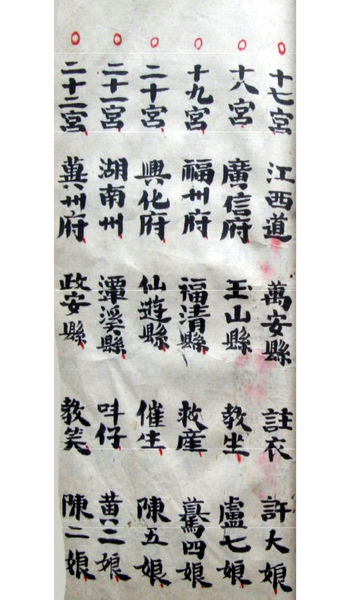 十七宮 江西道 萬安縣 註衣 許大娘
十八宮 廣信府 玉山縣 教坐 盧七娘
十九宮 福州府 福清縣 救産 四娘
二十宮 興化府 仙遊縣 催生 陳五娘
二十一宮 湖南州 潭溪縣 仔 黄二娘
二十二宮 州府 政安縣 教笑 陳二娘